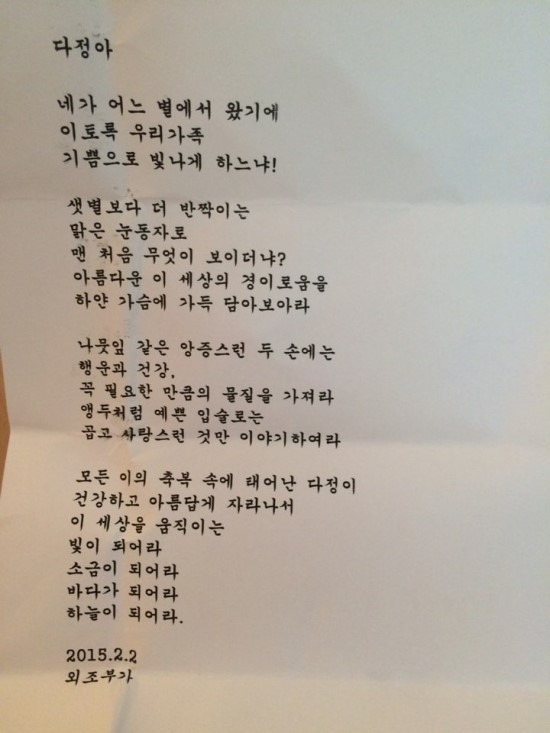 다정아
네가 어느 별에서 왔기에
이토록 우리가족
기쁨으로 빛나게 하느냐!
샛별보다 더 반짝이는
맑은 눈동자로
맨 처음 무엇이 보이더냐?
아름다운 이 세상의 경이로움을
하얀 가슴에 가득 담아보아라
나뭇잎 같은 앙증스런 두 손에는
행운과 건강.
꼭 필요한 만큼의 물질을 가져라
앵두처럼 예쁜 입술로는
곱고 사랑스런 것만 이야기하여라
모든 이의 축복 속에 태어난 다정이
건강하고 아름답게 자라나서
이 세상을 움직이는
빛이 되어라
소금이 되어라
바다가 되어라
하늘이 되어라.
2015.2.2
외조부가